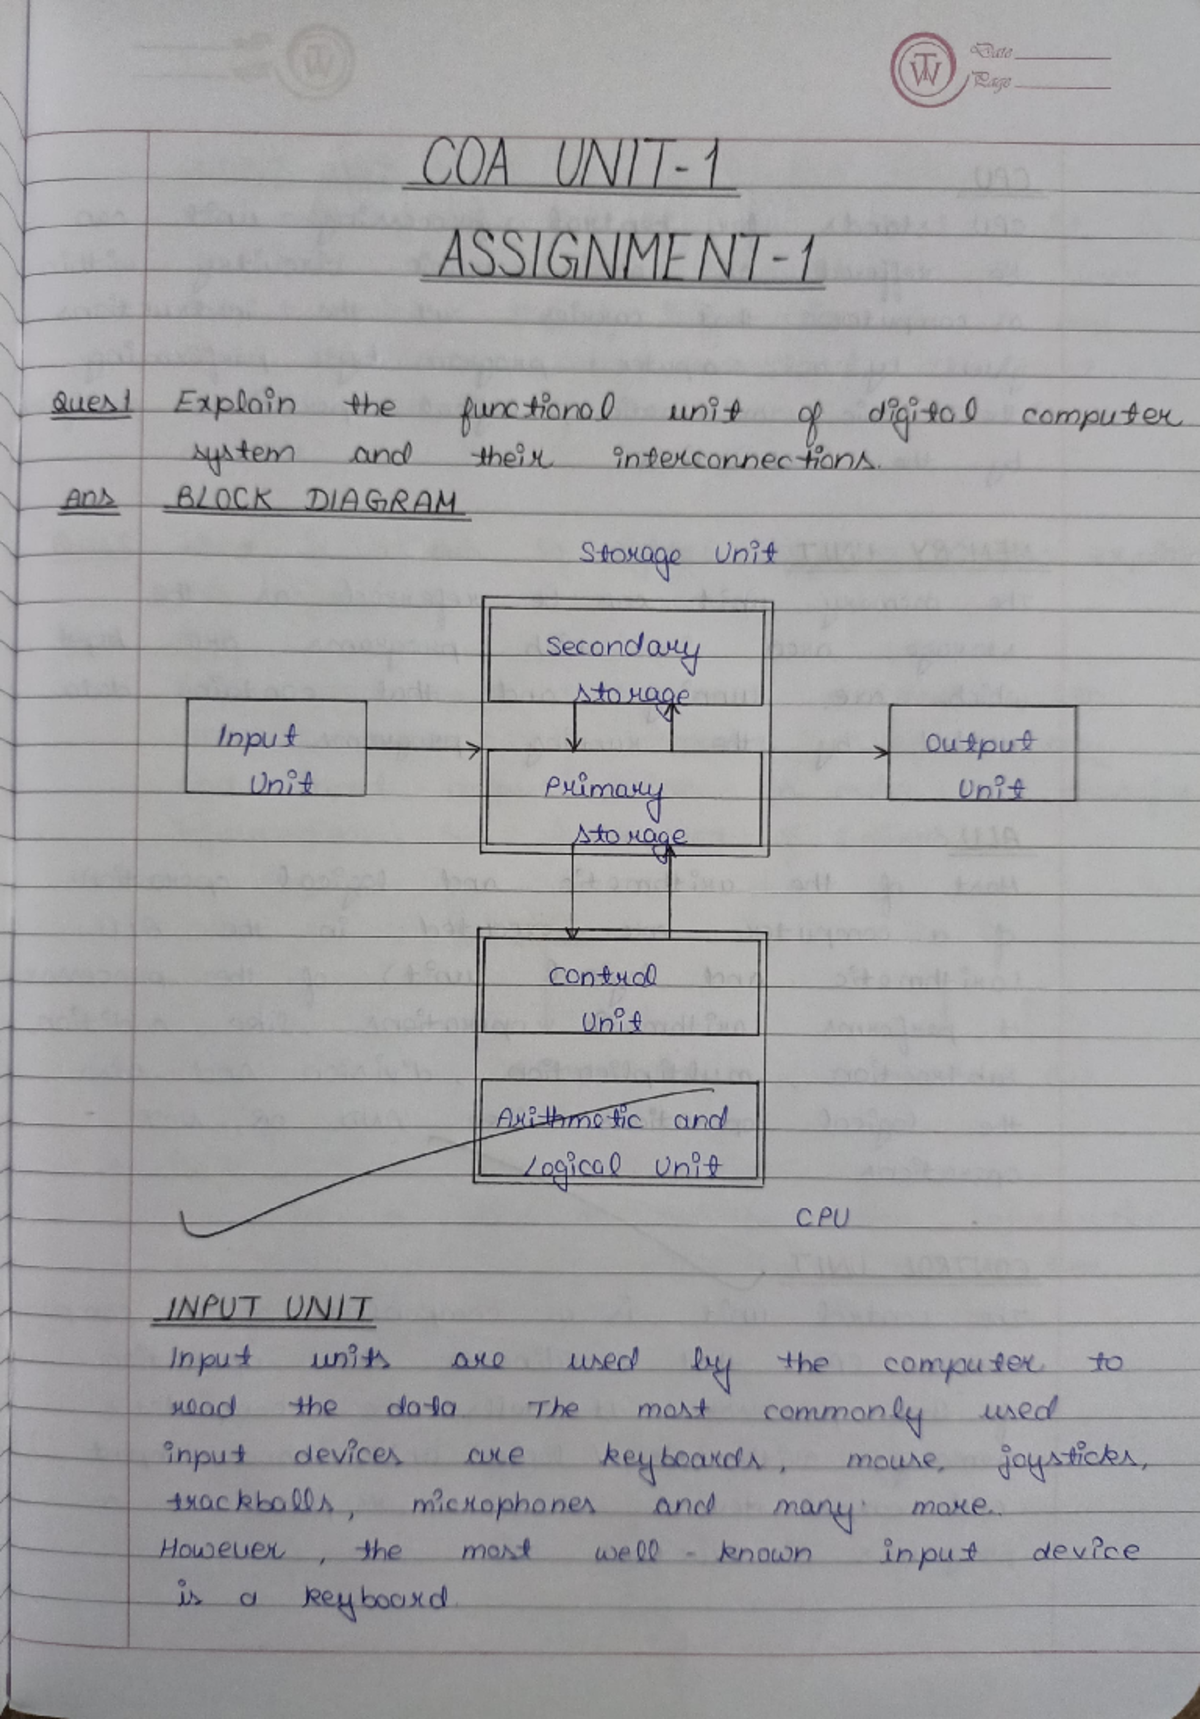 Date
Page
COA UNIT-1
ASSIGNMENT-1
Ques1 Explain the functional unit of digital computer
system and their interconnections.
Ans BLOCK DIAGRAM
Storage Unit
Secondary
storage
Input
Unit
Output
Unit
Primary
storage
Control
Unit
Arithmetic and
Logical Unit
CPU
INPUT UNIT
Input units are used by the computer to
read the data. The most commonly used
input devices are keyboards, mouse, joysticks,
trackballs, microphones and many more.
However, the most well-known input device
is a keyboard.